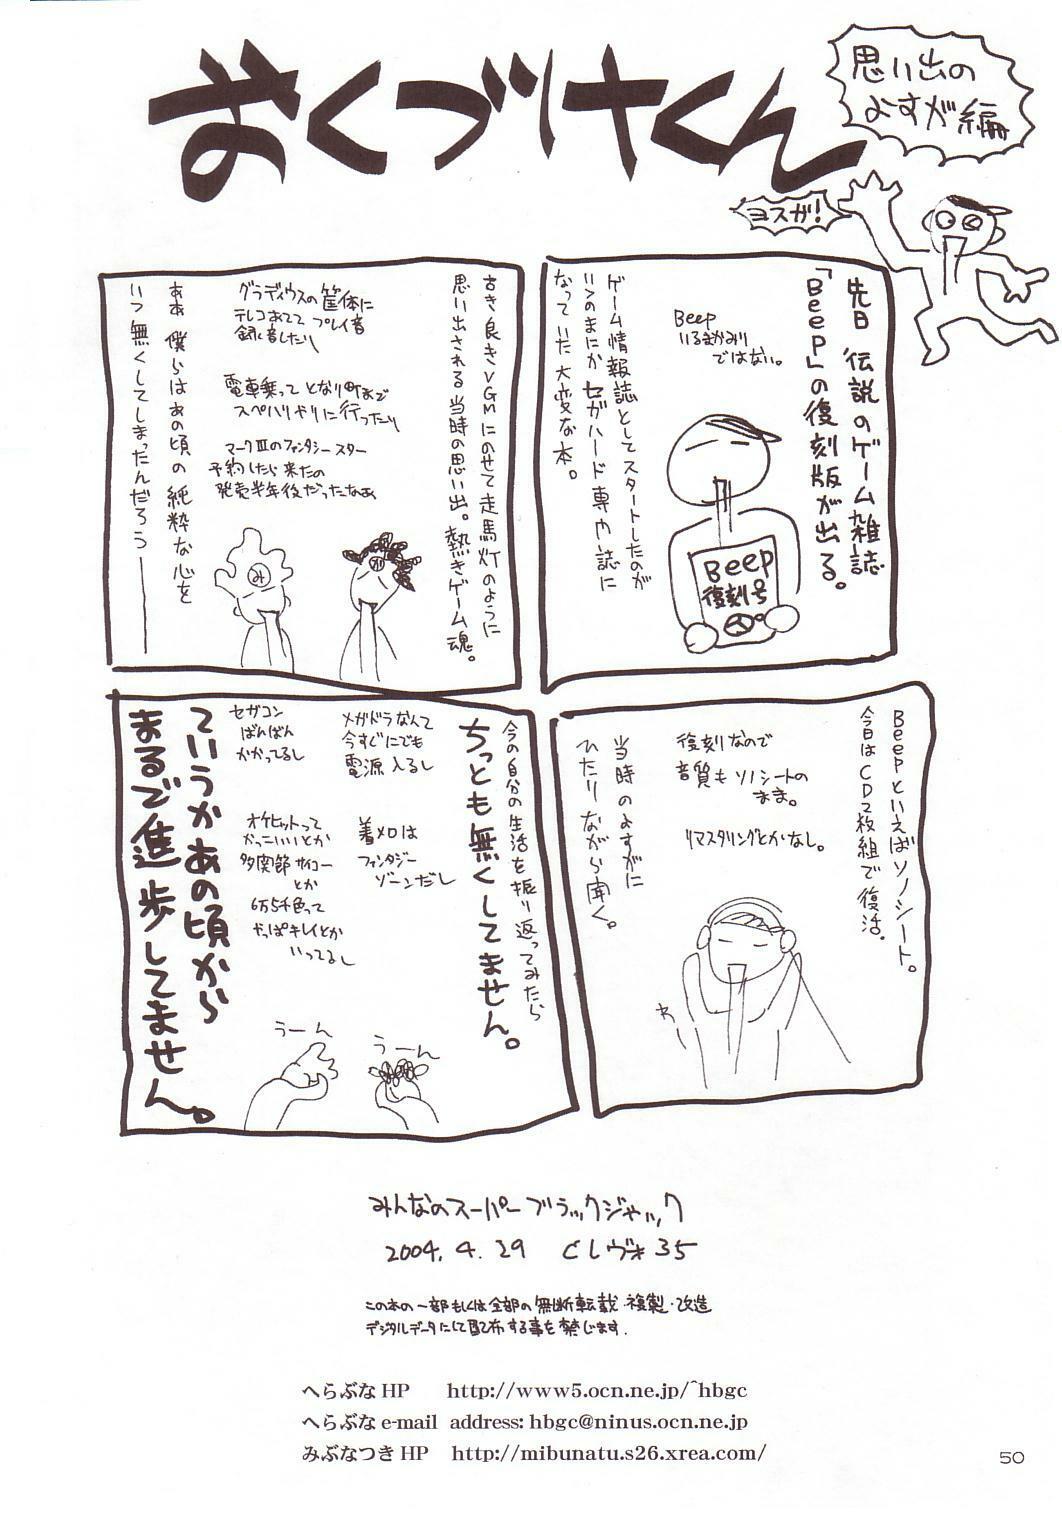 おくづけくん
思い出の
よすが編
ヨスガ!
先日 伝説のゲーム雑誌
「Beep」の復刻版が出る。
Beep
いるまかみり
ではない。
ゲーム情報誌としてスタートしたのが
いつのまにかセガハード専門誌に
なっていた大変な本。
Beep
復刻号
Beepといえばソノシート。
今日はCD2枚組で復活。
復刻なので
音質もソノシートの
まま。
リマスタリングとかなし。
当時のよすがに
ひたりながら聞く。
古き良きVGMにのせて走馬灯のように
思い出される当時の思い出。熱きゲーム魂。
グラディウスの筐体に
テレコあててプレイ音
録音したり
電車乗ってとなり町まで
スペハリドリに行ったり
マークⅢのファンタシースター
予約したら来たの
発売半年後だったなぁ
み
み
ああ 僕らはあの頃の純粋な心を
いつ無くしてしまったんだろう――
今の自分の生活を振り返ってみたら
ちっとも無くしてません。
メガドラなんて
今すぐにでも
電源入るし
着メロは
ファンタジー
ゾーンだし
セガコン
ばんばん
かかってるし
オケヒットって
かっこいいとか
多関節サイコー
とか
6万5千色って
やっぱキレイとか
いってるし
うーん
うーん
ていうかあの頃から
まるで進歩してません。
みんなのスーパーブラックジャック
2004.4.29 Cレヴォ35
この本の一部もしくは全部の無断転載・複製・改造
デジタルデータにして配布する事を禁じます.
へらぶなHP http://www5.ocn.ne.jp/~hbgc
へらぶなe-mail address: hbgc@ninus.ocn.ne.jp
みぶなつきHP http://mibunatu.s26.xrea.com/
50